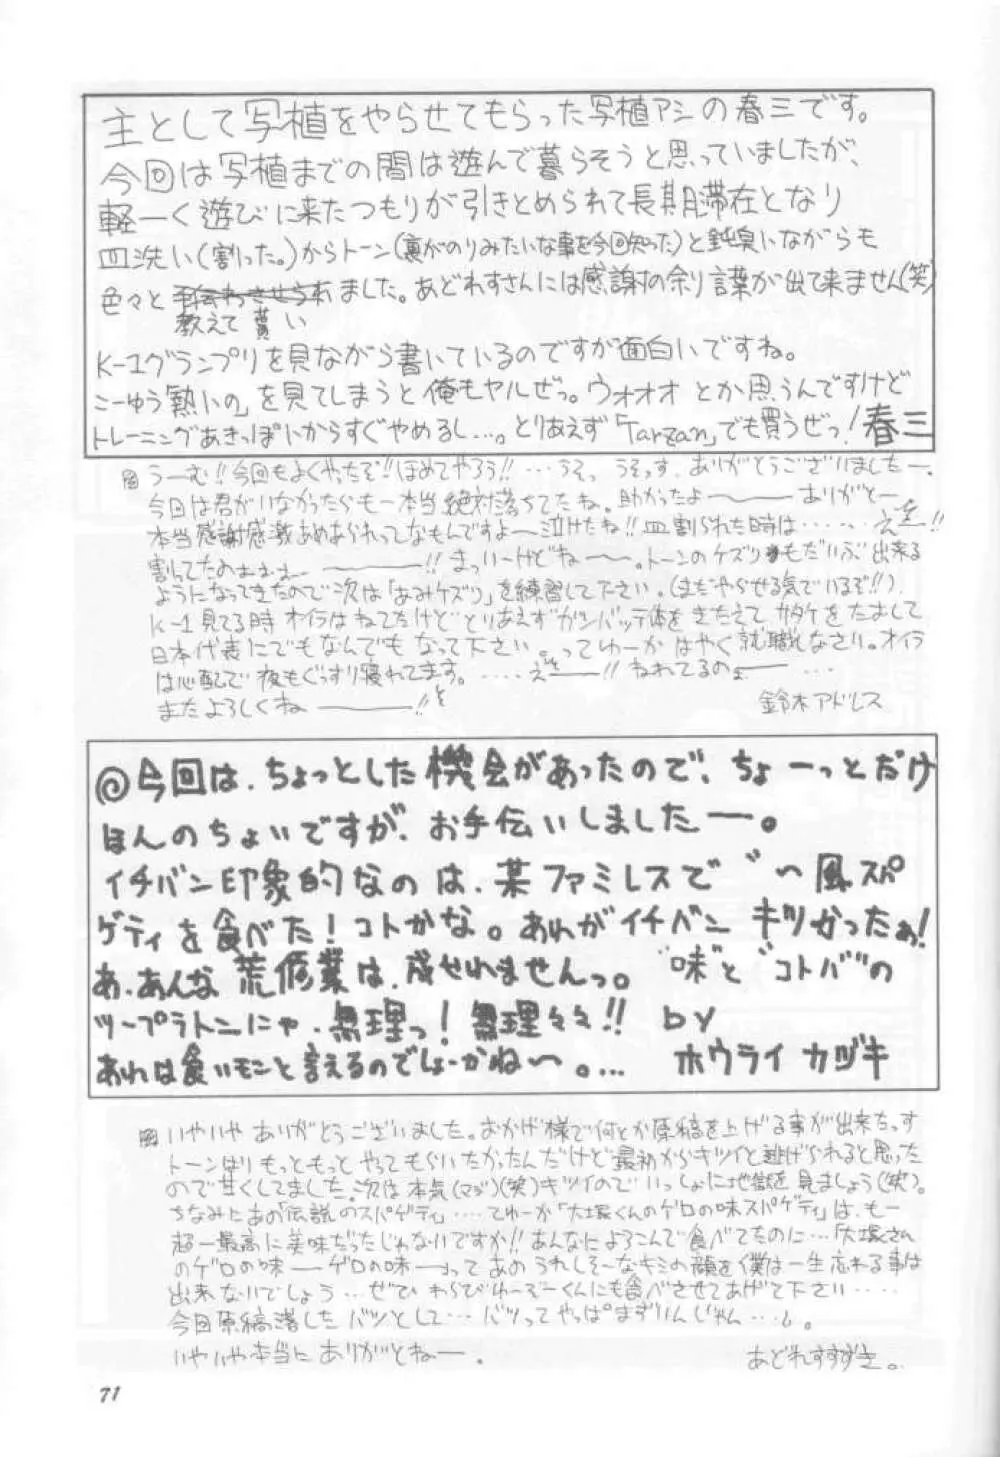 主として写植をやらせてもらった写植アシの春三です。
今回は写植までの間は遊んで暮らそうと思っていましたが、
軽ーく遊びに来たつもりが引きとめられて長期滞在となり
皿洗い(割った。)からトーン(裏がのりみたいな事を今回知った)と鈍臭いながらも
色々と ました。あどれすさんには感謝の余り言葉が出て来ません(笑)
教えて貰い
K-1グランプリを見ながら書いているのですが面白いですね。
こーゆう「熱いの」を見てしまうと俺もヤルぜっ。ウォオオ とか思うんですけど
トレーニングあきっぽいからすぐやめるし…。とりあえず「Tarzan」でも買うぜっ! 春三
うーむ!!今回もよくやったぞ!!ほめてやろう!!…うそっ うそっす、ありがとうございましたー。
今回は君がいなかったらもー本当絶対落ちてたね。助かったよ―――ありがとー
本当感謝感激あめあられってなもんですよ〜泣けたね!!皿割られた時は……
割ってたのぉぉぉ―――!!まっいーけどね――〜。トーンのケズリもだいぶ出来る
ようになってきたので次は「あみケズリ」を練習して下さい。(まだやらせる気でいるぞ!!)
K-1見てる時オイラはねてたけどとりあえずガンバッテ体をきたえてサタケをたまして
日本代表にでもなんでもなって下さい。ってゆーかはやく就職しなさい。オイラ
は心配で夜もぐっすり寝れてます。……え――!!ねれてるのぉ―― …
またよろしくね ―――!!と
鈴木アドレス
@今回は、ちょっとした機会があったので、ちょーっとだけ
ほんのちょいですが、お手伝いしましたー。
イチバン印象的なのは、某ファミレスで゛〜風スパ
ゲティを食べた!コトかな。あれがイチバン キツかったぁ!
あ、あんな荒修業は、成せれませんっ。“味”と“コトバ”の
ツープラトンにゃ、無理っ!無理々々!! by
あれは食いモンと言えるのでしょーかね〜。… ホウライ カヅキ
いやいやありがとうございました。おかげ様で何とか原稿を上げる事が出来たっす
トーンはりもっともっとやってもらいたかったんだけど最初からキツイと逃げられると思った
ので甘くしてました。次は本気(マヂ)(笑)キツイのでいっしょに地獄を見ましょう(笑)。
ちなみにあの「伝説のスパゲティ」……てゆーか「大塚くんのゲロの味スパゲティ」は、もー
超ー最高に美味だったじゃないですか!!あんなによろこんで食べてたのに…「大塚さん
のゲロの味ーゲロの味ー」ってあのうれしそーなキミの顔を僕は一生忘れる事は
出来ないでしょう…ぜひわらびゅーぞーくんにも食べさせてあげて下さい……
今回原稿落したバツとして…バツってやっぱまずいんじゃん…。
いやいや本当にありがとねー。 あどれすすずき。
71